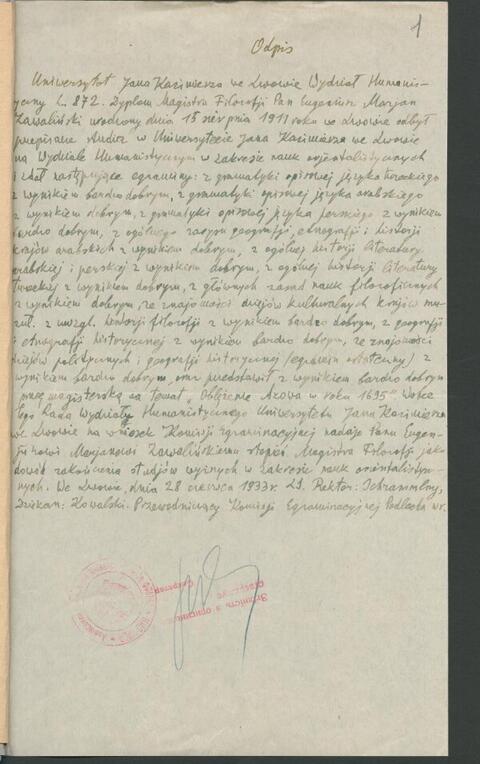 1
Odpis
Uniwersytet Jana Kazimierza we Lwowie Wydział Humanis-
tyczny L. 872. Dyplom Magistra Filozofji Pan Eugeniusz Marjan
Zawaliński urodzony dnia 15 sierpnia 1911 roku we Lwowie odbył
przepisane studia w Uniwersytecie Jana Kazimierza we Lwowie
na Wydziale Humanistycznym w zakresie nauk orjentalistycznych
i zdał następujące egzaminy: z gramatyki opisowej języka tureckiego
z wynikiem bardzo dobrym, z gramatyki opisowej języka arabskiego
z wynikiem dobrym, z gramatyki opisowej języka perskiego z wynikiem
bardzo dobrym, z ogólnego zarysu geografji, etnografji i historji
krajów arabskich z wynikiem dobrym, z ogólnej historji literatury
arabskiej i perskiej z wynikiem dobrym, z ogólnej historji literatury
tureckiej z wynikiem dobrym, z głównych zasad nauk filozoficznych
z wynikiem dobrym, ze znajomości dziejów kulturalnych krajów mu-
zuł. z uwzgl. historji filozofji z wynikiem bardzo dobrym, z geografji
i etnografji historycznej z wynikiem bardzo dobrym, ze znajomości
dziejów politycznych i geografji historycznej (egzamin ostateczny) z
wynikiem bardzo dobrym, oraz przedstawił z wynikiem bardzo dobrym
pracę magisterską na temat "Oblężenie Azowa w roku 1695" Wobec
tego Rada Wydziału Humanistycznego Uniwersytetu Jana Kazimierza
we Lwowie na wniosek Komisji Egzaminacyjnej nadaje Panu Euge-
njuszowi Marjanowi Zawalińskiemu stopień Magistra Filozofji jako
dowód zakończenia studjów wyższych w zakresie nauk orjentalistycz-
nych. We Lwowie, dnia 28 czerwca 1933 r. LS. Rektor:
Dziekan: Kowalski. Przewodniczący Komisji Egzaminacyjnej Podlacha wr.
Zgodność z
stwierdza
Sekretarz